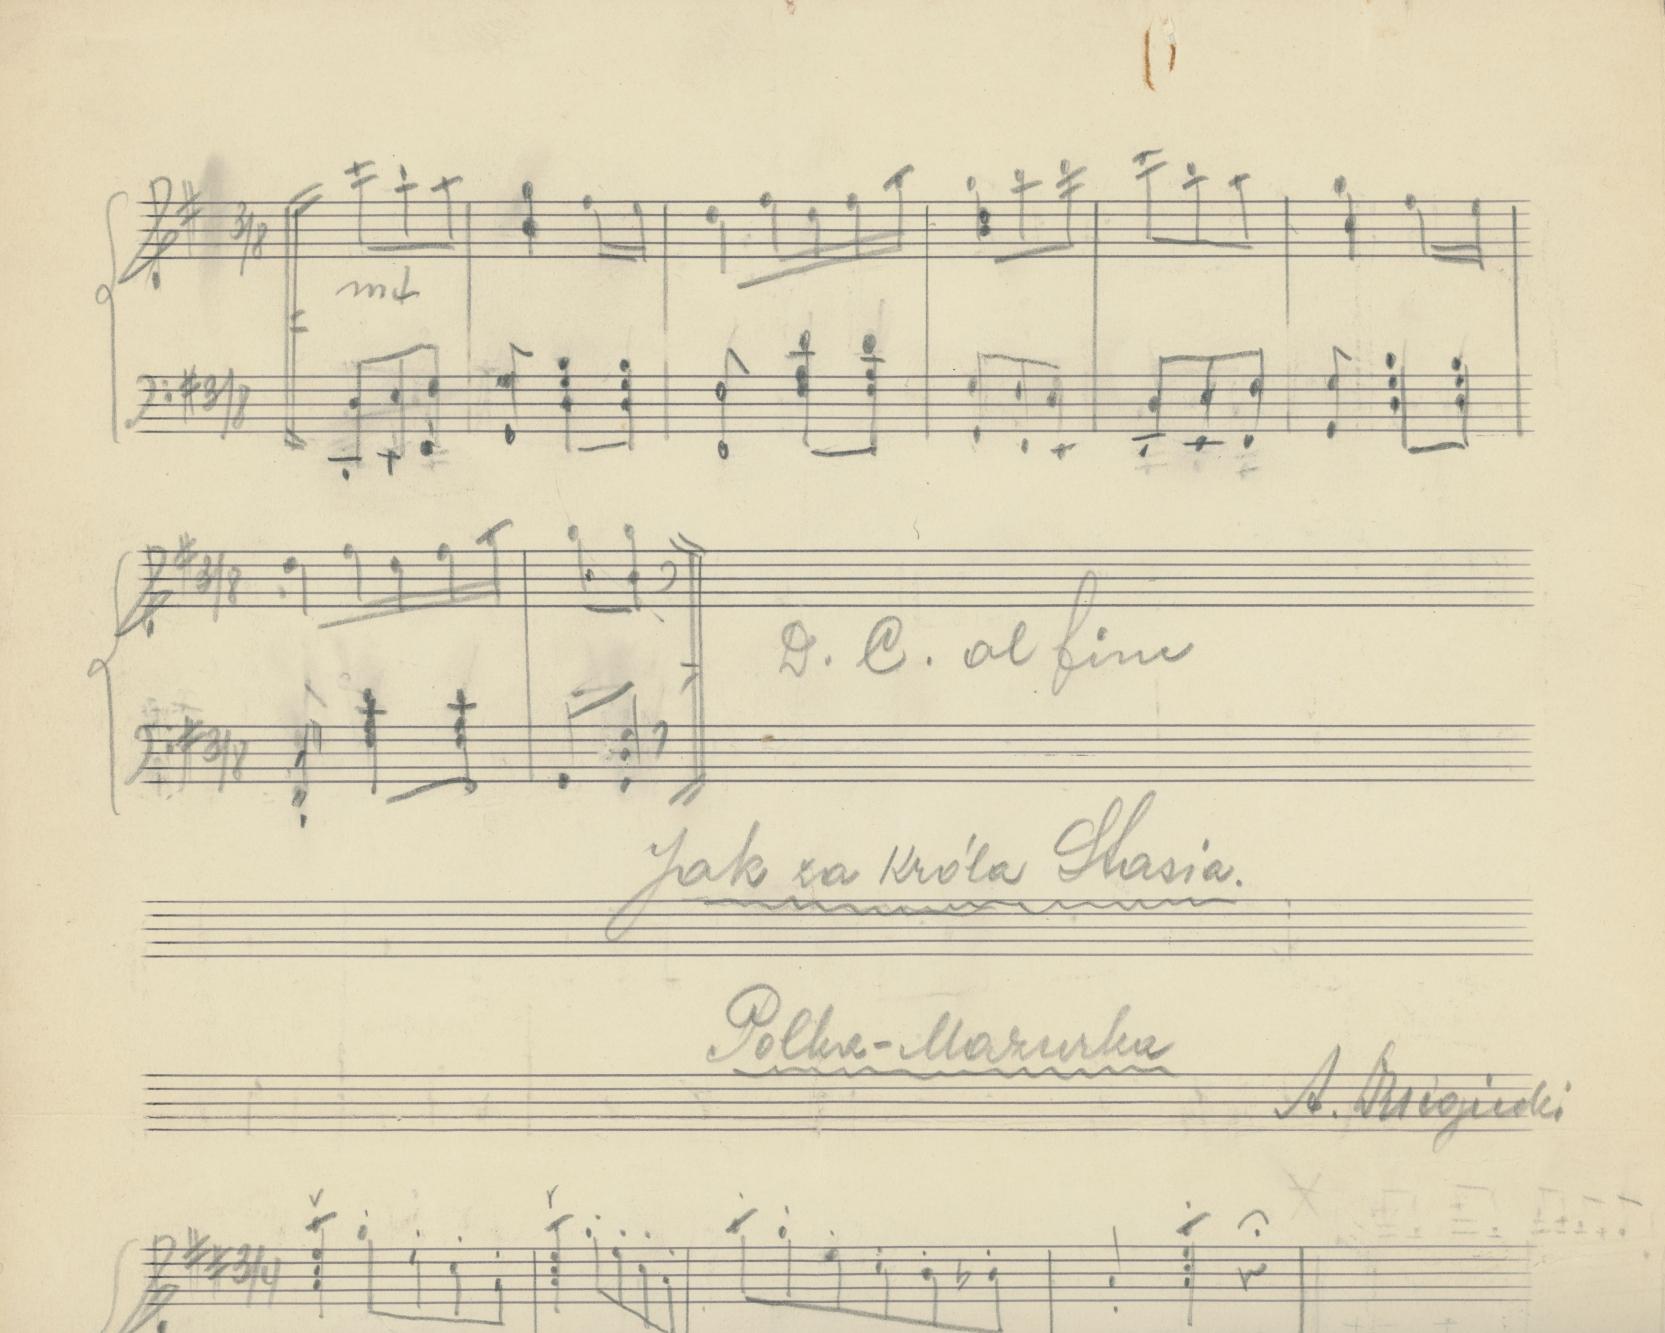 3/8
mf
3/8
3/8
D. C. al fine
3/8
Jak za króla Stasia.
Polka-Mazurka
A.
3/4